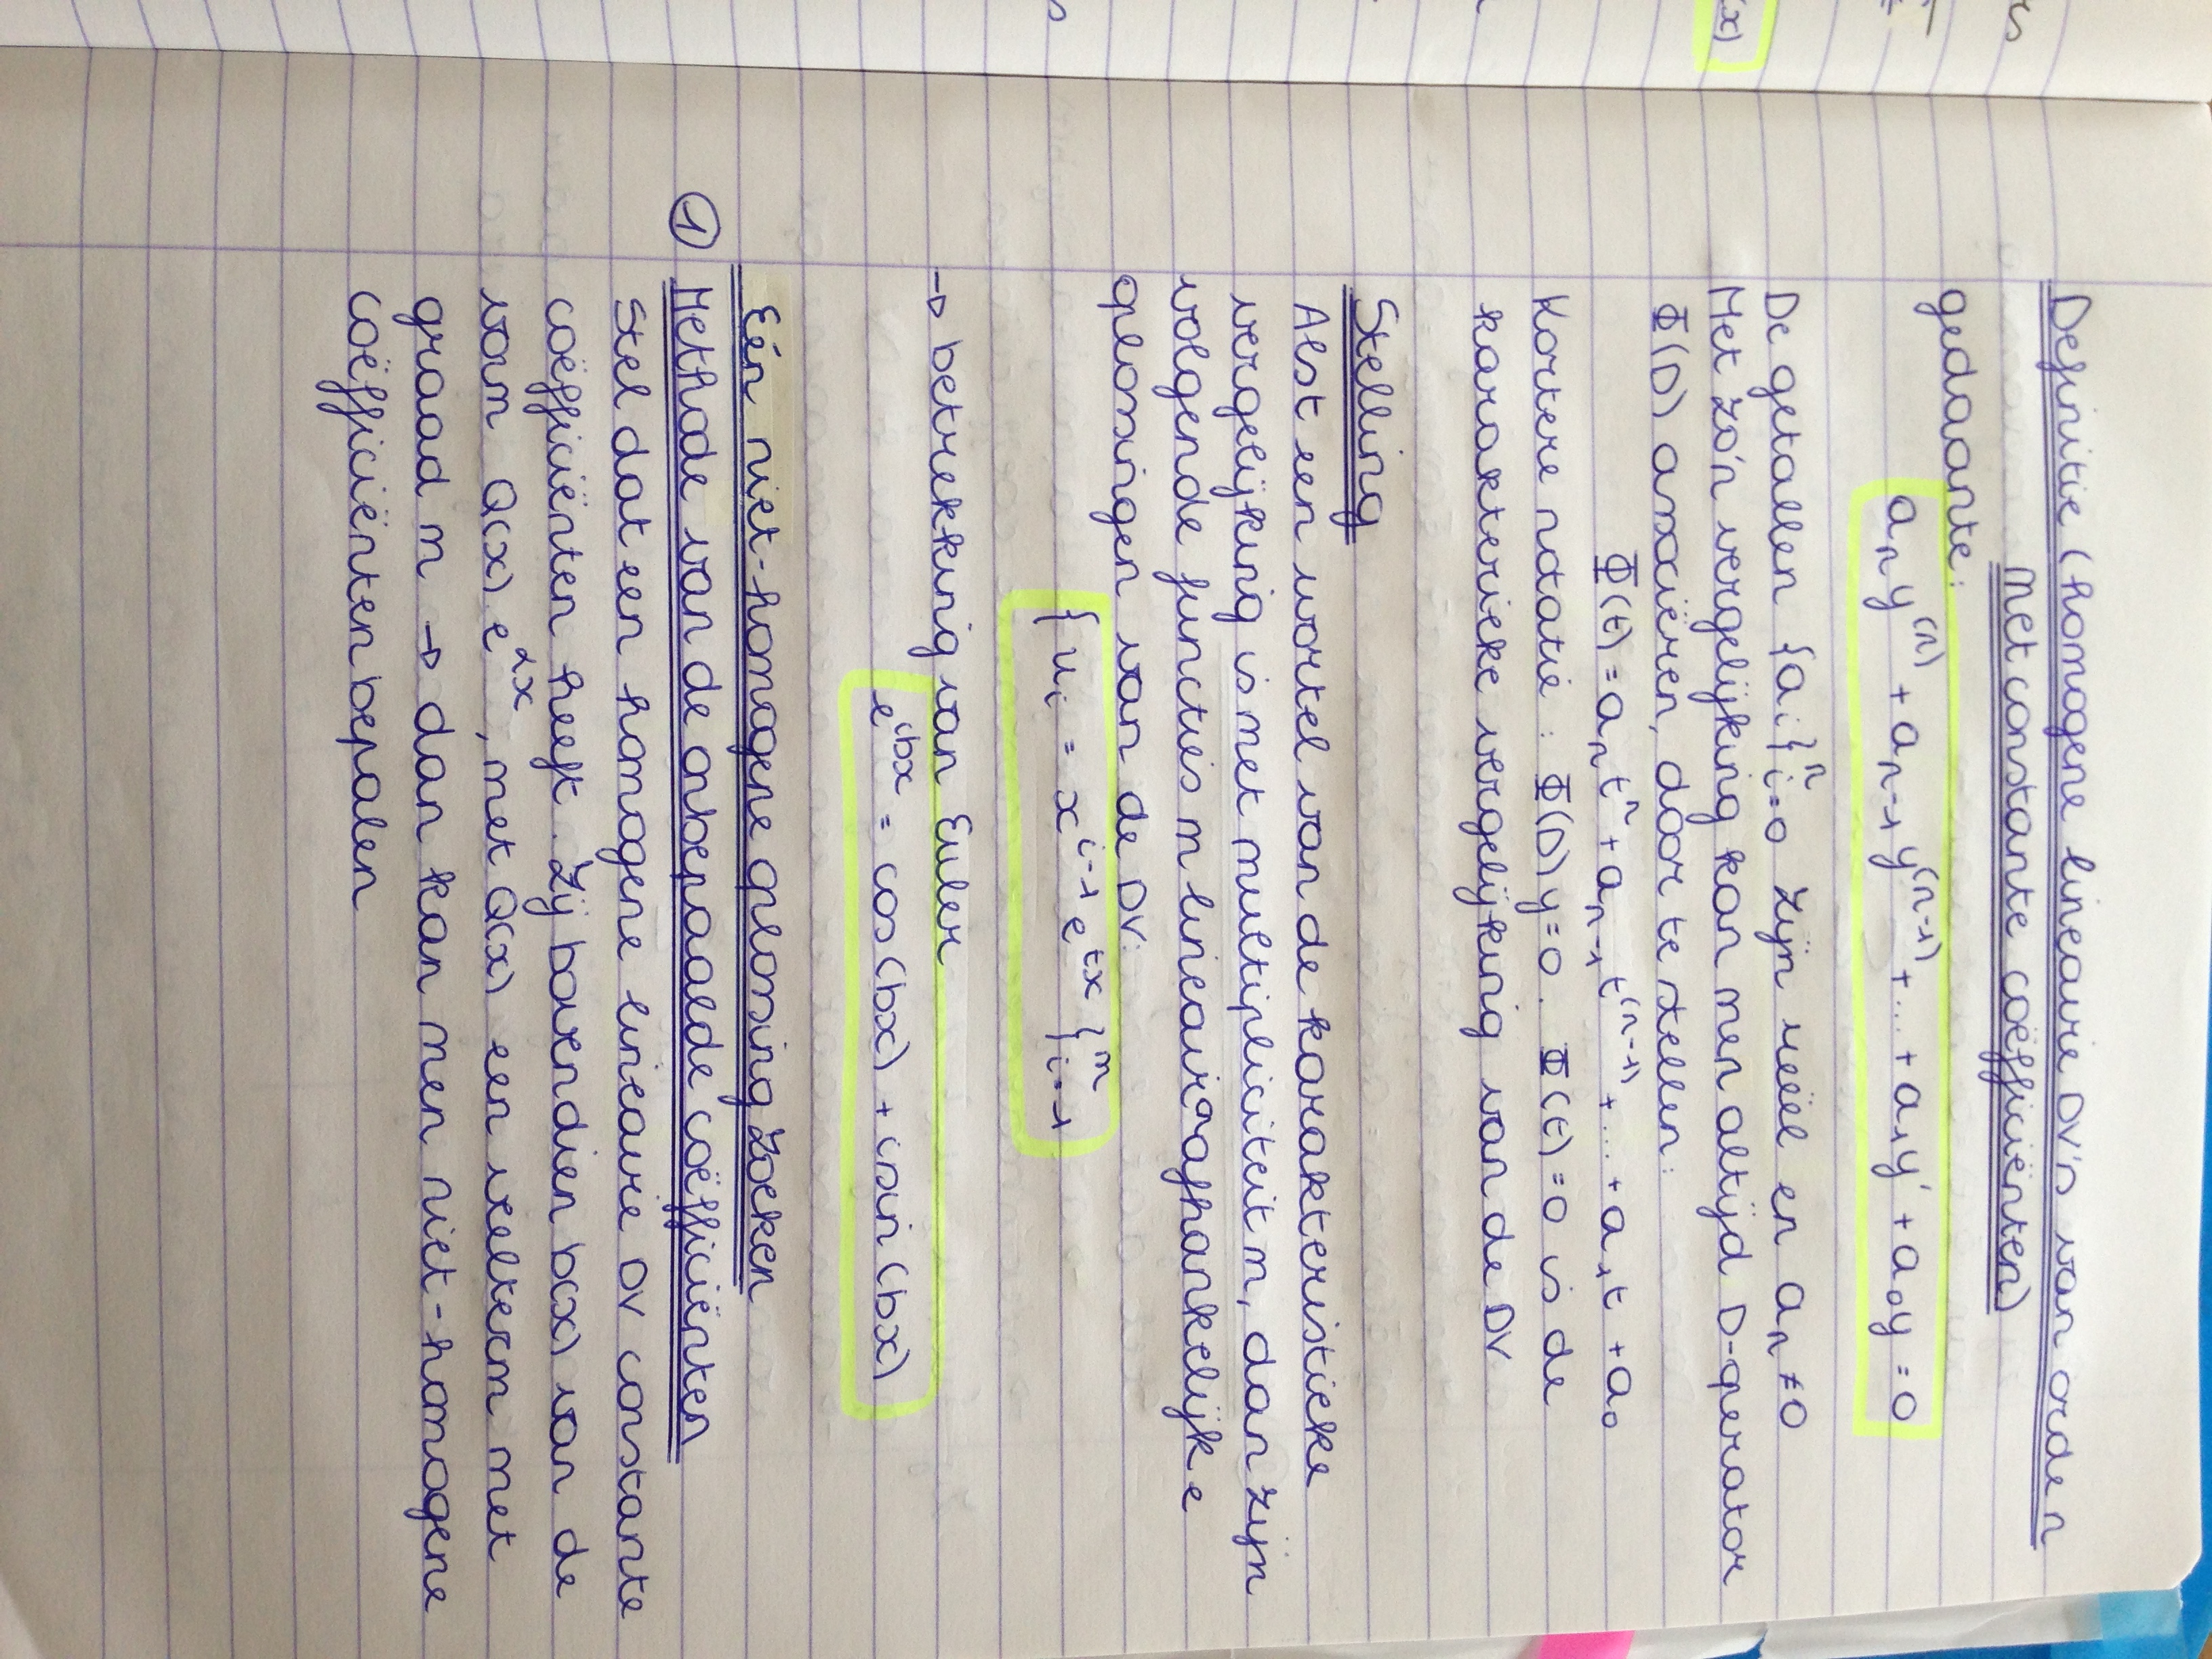 Definitie (homogene lineaire DV's van orde n
met constante coëfficiënten)
gedaante:
aₙy⁽ⁿ⁾ + aₙ₋₁y⁽ⁿ⁻¹⁾ + ... + a₁y' + a₀y = 0
De getallen {aᵢ}ⁿᵢ₌₀ zijn reëel en aₙ ≠ 0
Met zo'n vergelijking kan men altijd D-operator
Φ(D) associëren, door te stellen:
Φ(t) = aₙtⁿ + aₙ₋₁t⁽ⁿ⁻¹⁾ + ... + a₁t + a₀
Kortere notatie : Φ(D)y = 0. Φ(t) = 0 is de
karakterieke vergelijking van de DV
Stelling
Als t een wortel van de karakteristieke
vergelijking is met multipliciteit m, dan zijn
volgende functies m lineair onafhankelijke
oplossingen van de DV:
{uᵢ = xⁱ⁻¹eᵗˣ}ᵐᵢ₌₁
→ betrekking van Euler
eⁱᵇˣ = cos(bx) + i sin(bx)
Eén niet-homogene oplossing zoeken
① Methode van de onbepaalde coëfficiënten
Stel dat een homogene lineaire DV constante
coëfficiënten heeft. Zij bovendien b(x) van de
vorm Q(x) e^αx, met Q(x) een veelterm met
graad m → dan kan men niet-homogene
coëfficiënten bepalen
(x)